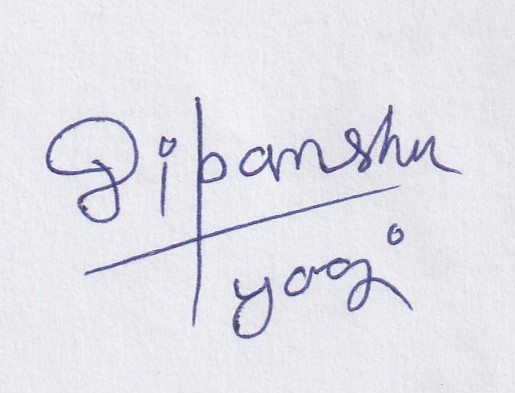 Dipanshu
yogi